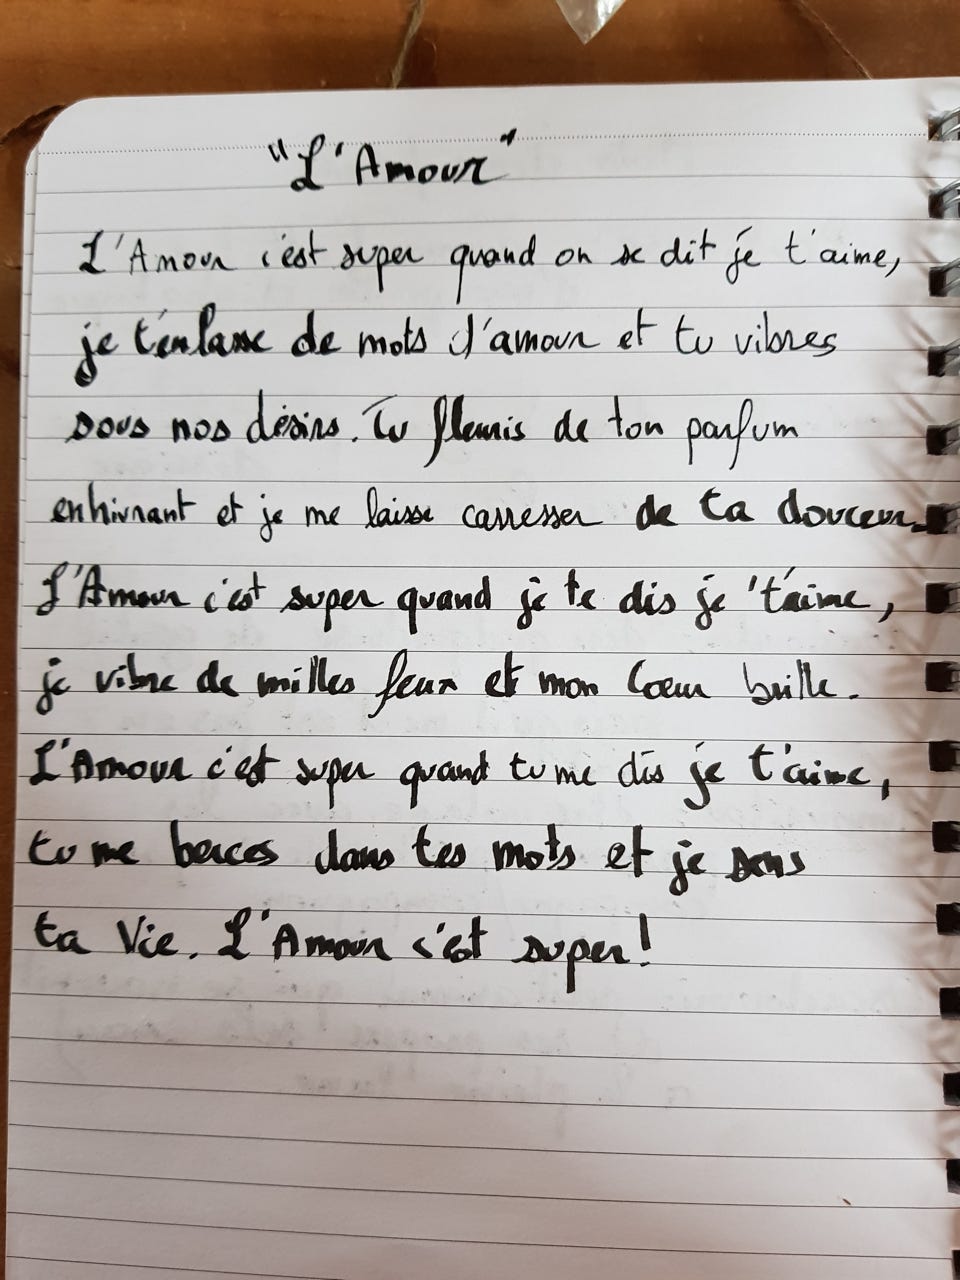 "L'Amour"
L'Amour c'est super quand on se dit je t'aime,
je t'enlasse de mots d'amour et tu vibres
sous nos désirs. Tu fleuris de ton parfum
enhivrant et je me laisse carresser de ta douceur.
L'Amour c'est super quand je te dis je t'aime,
je vibre de milles feux et mon Coeur brille.
L'Amour c'est super quand tu me dis je t'aime,
tu me berces dans tes mots et je sens
ta Vie. L'Amour c'est super!